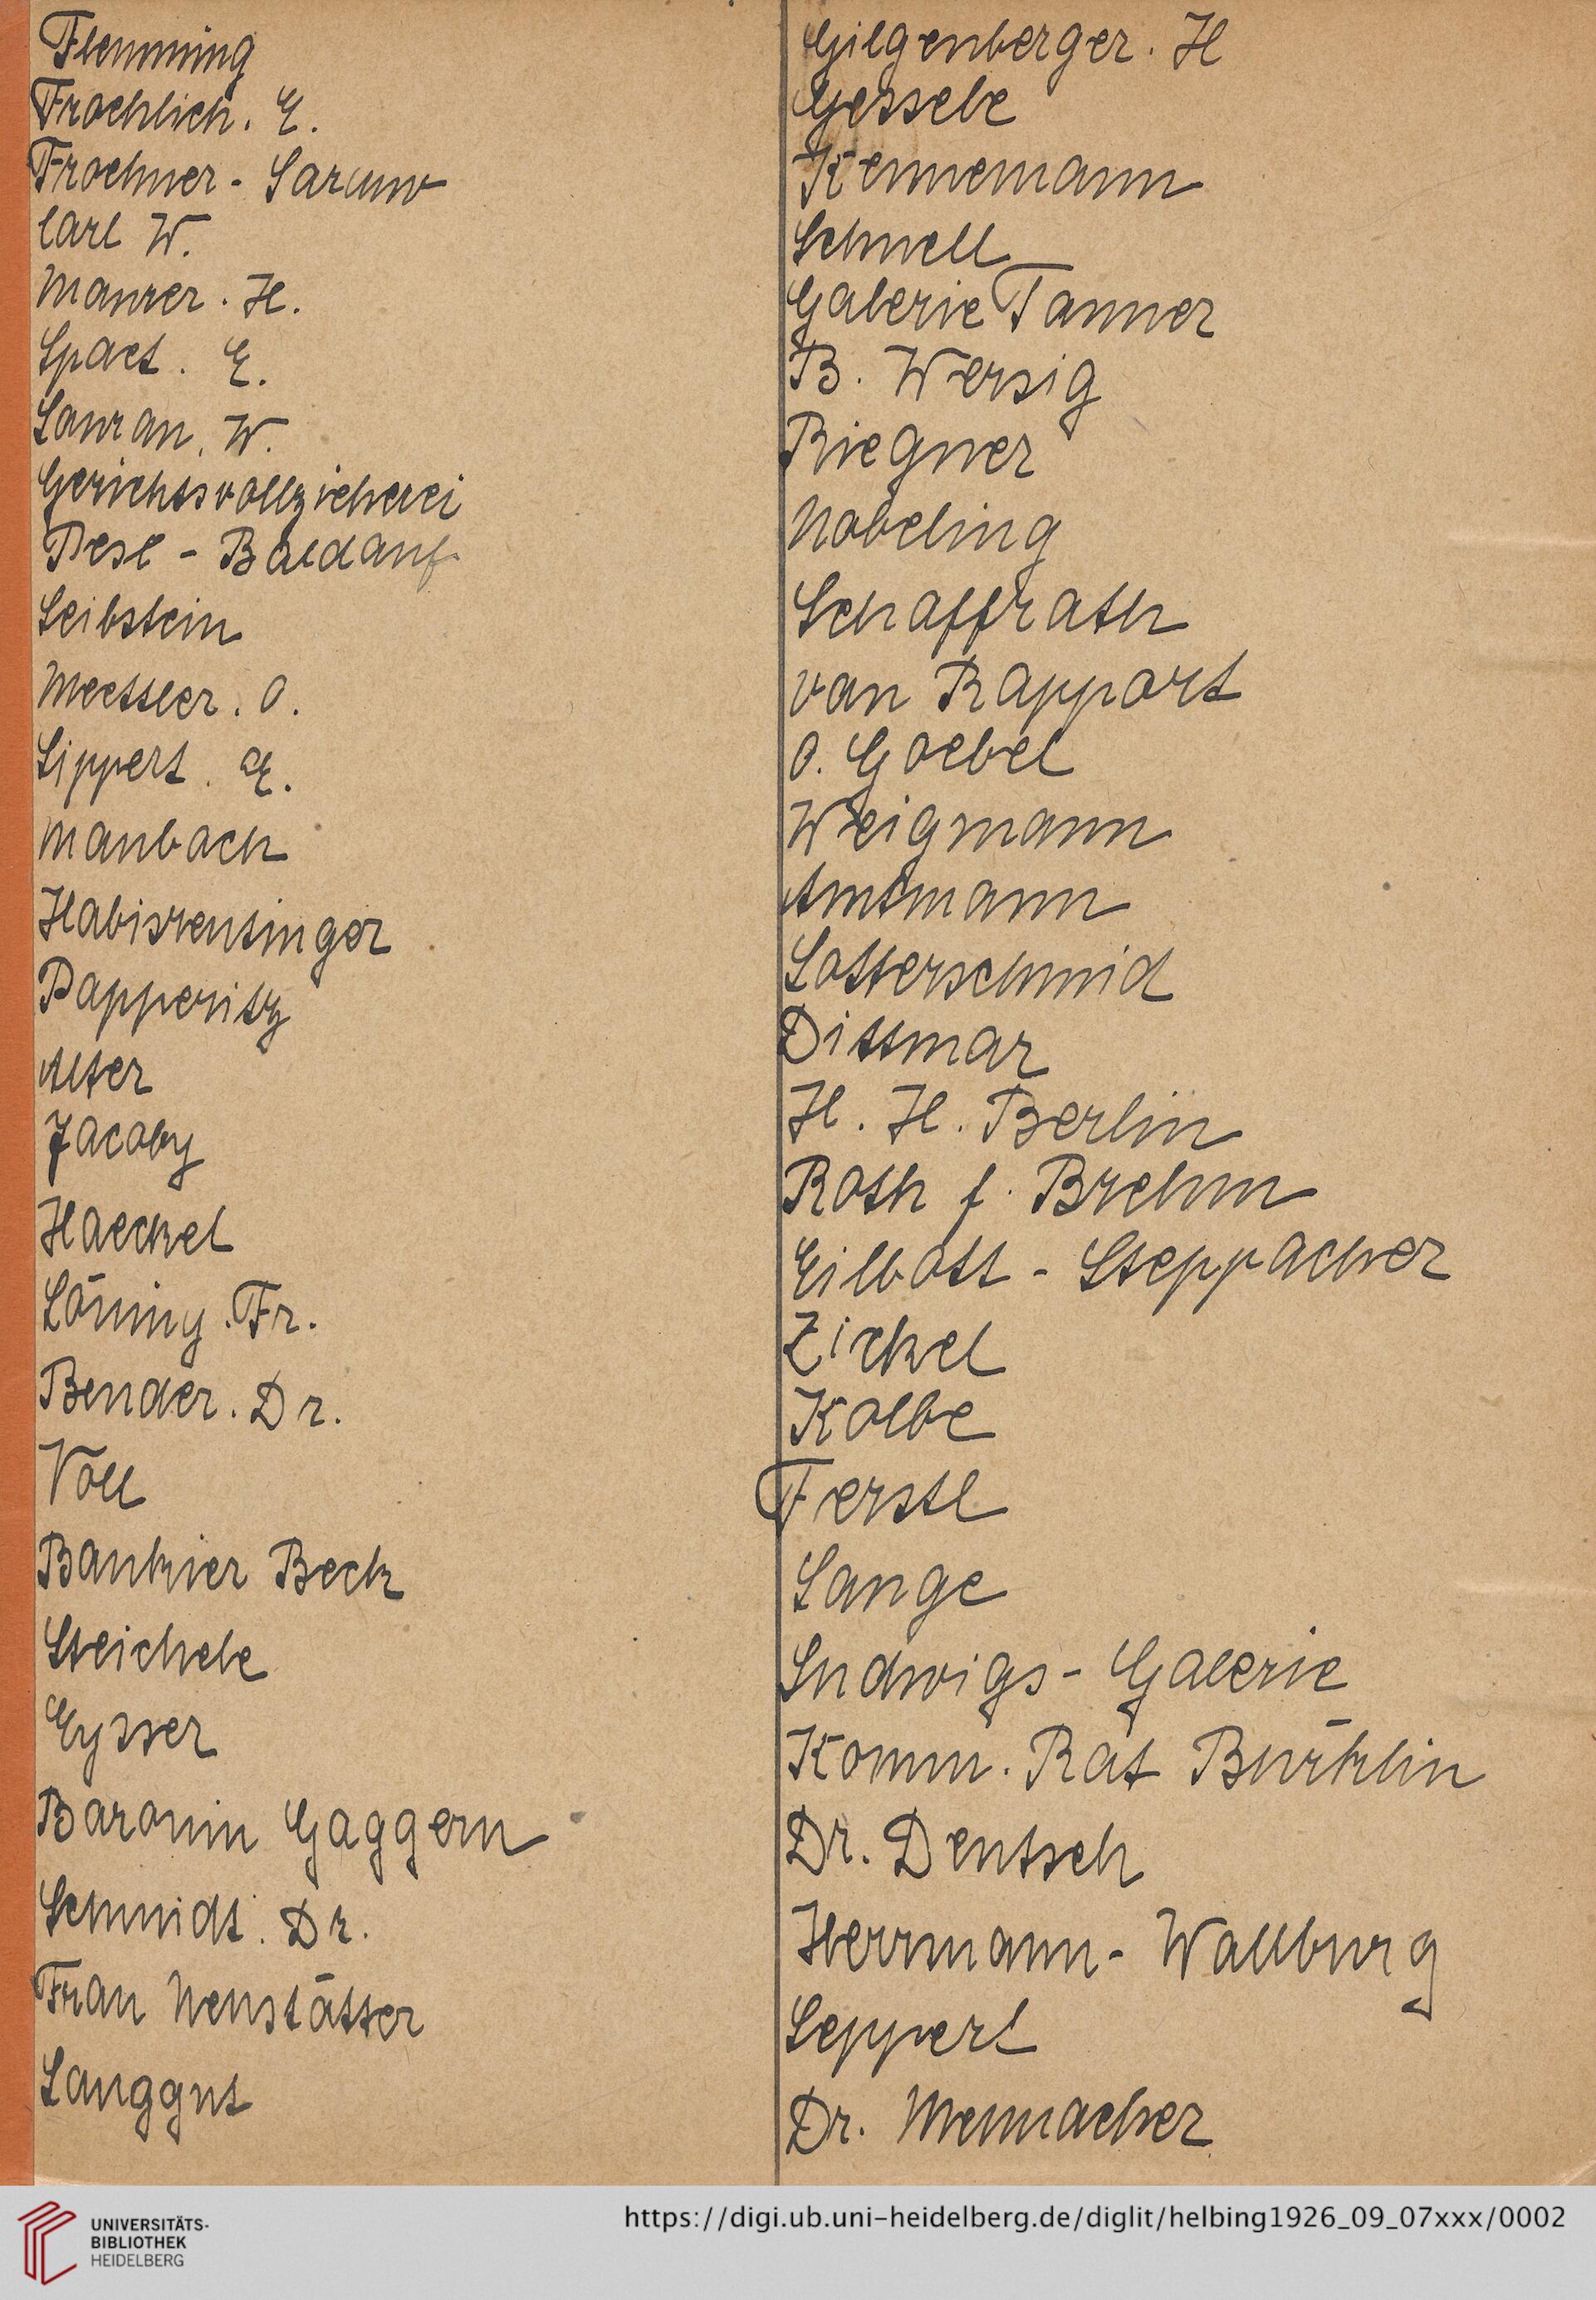 Flemming
Froehlich. E.
Froehner - Saruw
Carl W.
Maurer. H.
Spaet. E.
Lauran. W.
Gerichtsvollzieherei
Pesl - Baldauf
Leibstein
Meettler. O.
Lippert. E.
Maubach
Habisreutinger
Papperitz
Alter
Jacoby
Haeckel
Löning. Fr.
Bender. Dr.
Voll
Bankier Beck
Steichele
Eysser
Baronin Gaggern
Schmidt. Dr.
Frau Neustätter
Langgut
Gilgenberger. H
Gessele
Kennemann
Schnell
Galerie Tanner
B. Wersig
Riegner
Nobeling
Schaffrath
van Rapport
O. Goebel
Weigmann
Amtmann
Lotterschmid
Dittmar
H. H. Berlin
Roth f. Brehm
Eilbott - Steppacher
Zickel
Kolbe
Ferstl
Lange
Ludwigs - Galerie
Komm. Rat Bürklin
Dr. Deutsch
Herrmann - Wallburg
Sepperl
Dr. Mennacher
UNIVERSITÄTS-
BIBLIOTHEK
HEIDELBERG
https://digi.ub.uni-heidelberg.de/diglit/helbing1926_09_07xxx/0002